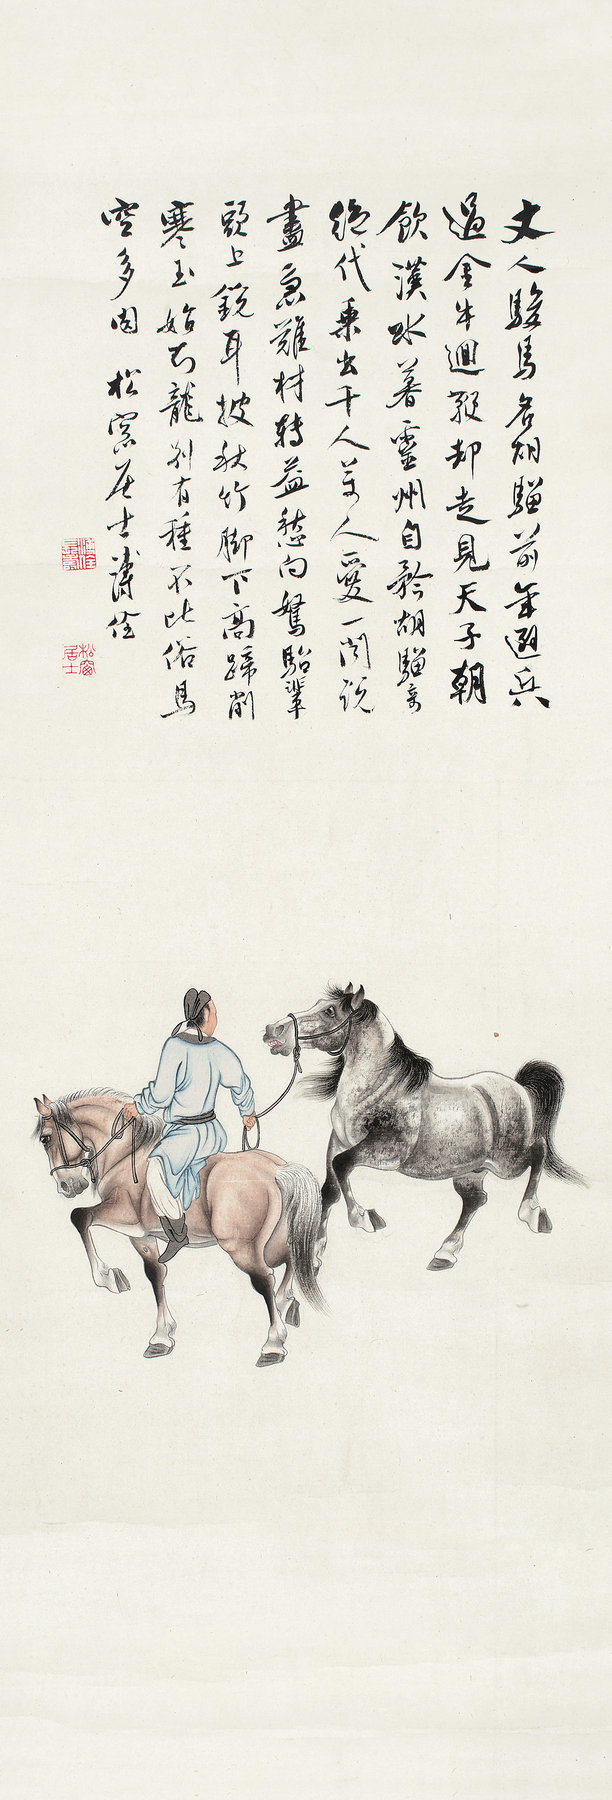 丈人駿馬名胡騮前年避兵
過金牛迴鞭却走見天子朝
飲漢水暮靈州自矜胡騮奇
絕代乘出千人萬人愛一聞說
盡急難材轉益愁向駑駘輩
頭上銳耳披秋竹脚下高蹄削
寒玉始知龍別有種不比俗馬
空多肉 松窗居士溥佺
松窗居士